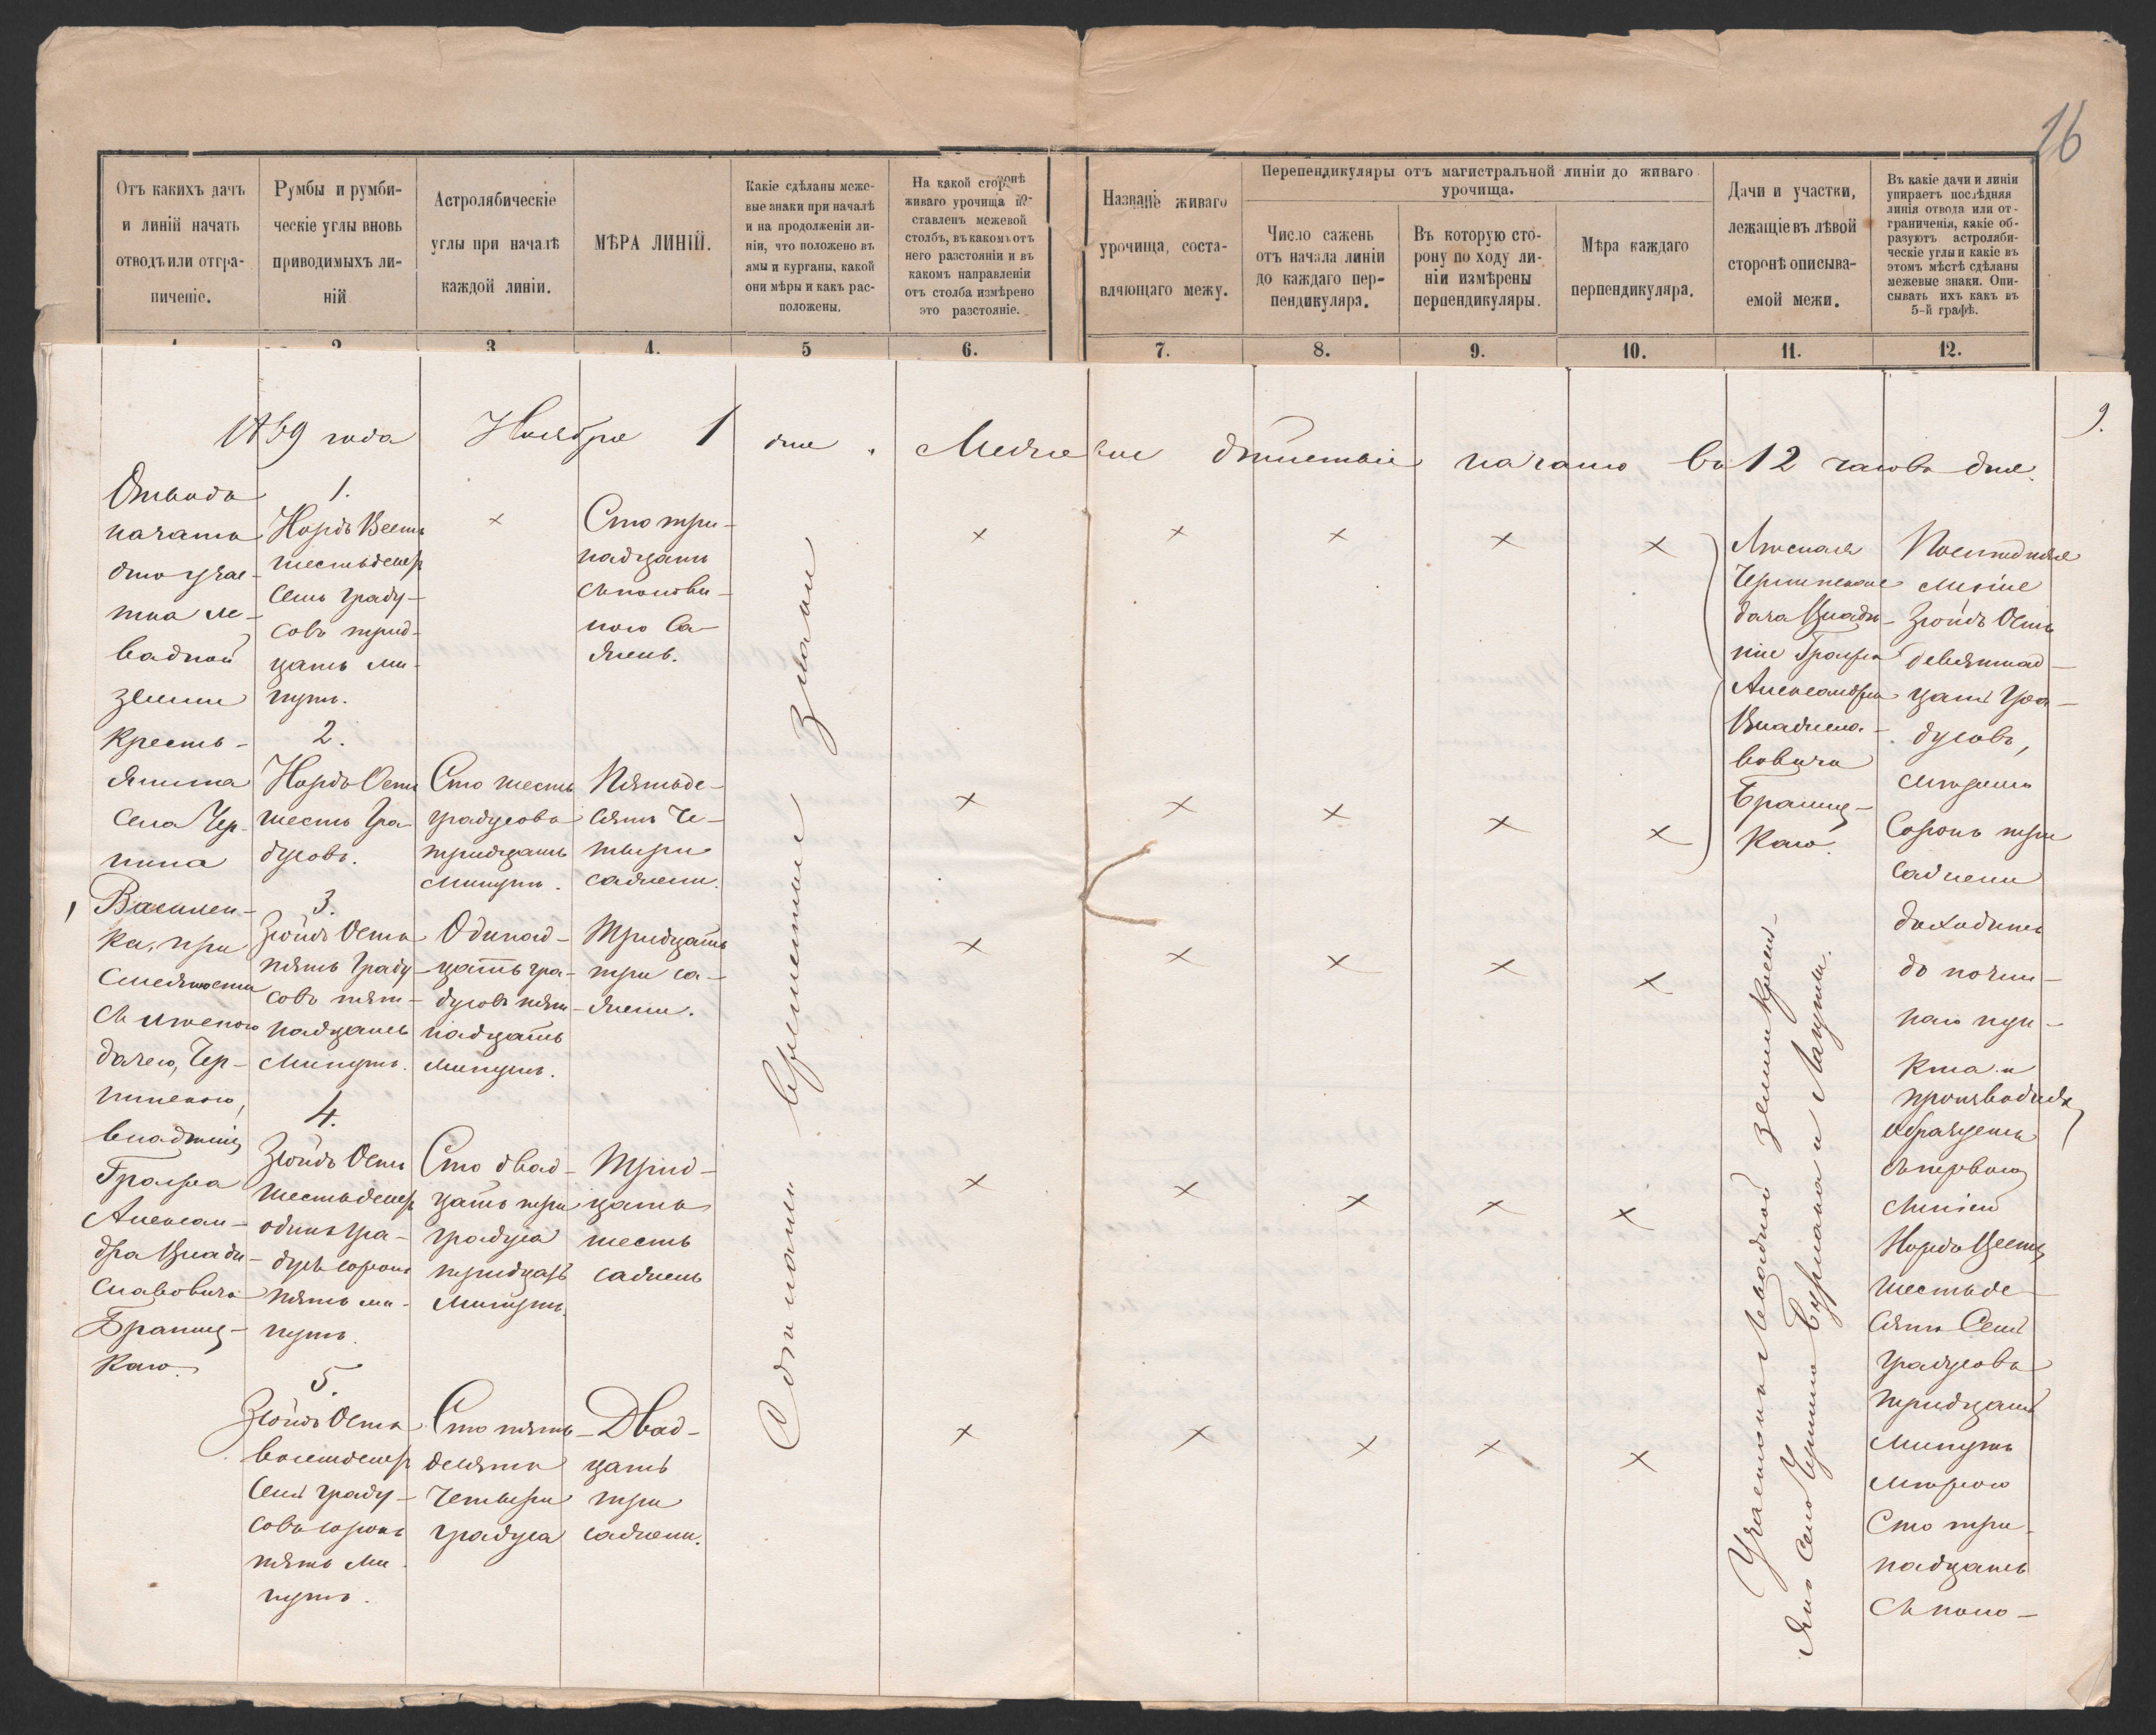 16
Отъ какихъ дачъ
и линій начать
отводъ или отгра-
ниченіе.
Румбы и румби-
ческіе углы вновь
приводимыхъ ли-
ній
Астролябическіе
углы при началѣ
каждой линіи.
МѢРА ЛИНІЙ.
Какіе сдѣланы меже-
вые знаки при началѣ
и на продолженіи ли-
ніи, что положено въ
ямы и курганы, какой
они мѣры и какъ рас-
положены.
На какой сторонѣ
живаго урочища по-
ставленъ межевой
столбъ, въ какомъ отъ
него разстояніи и въ
какомъ направленіи
отъ столба измѣрено
это разстояніе.
Названіе живаго
урочища, соста-
вляющаго межу.
Перепендикуляры отъ магистральной линіи до живаго
урочища.
Число сажень
отъ начала линіи
до каждаго пер-
пендикуляра.
Въ которую сто-
рону по ходу ли-
ніи измѣрены
перпендикуляры.
Мѣра каждаго
перпендикуляра.
Дачи и участки,
лежащіе въ лѣвой
сторонѣ описыва-
емой межи.
Въ какіе дачи и линіи
упираетъ послѣдняя
линія отвода или от-
граниченія, какіе об-
разуютъ астроляби-
ческіе углы и какіе въ
этомъ мѣстѣ сдѣланы
межевые знаки. Опи-
сывать ихъ какъ въ
5-й графѣ.
1.
2.
3.
4.
5
6.
7.
8.
9.
10.
11.
12.
9.
года Ноября 1 дня. Межевое дѣйствіе начато въ 12 часовъ дня.
Отводъ
начатъ
отъ учас-
тка ле-
вадной
земли
кресть-
янина
села Чер-
нина
Василен-
ка, при
смежности
съ лѣсною
дачею, Чер-
нинскою,
владѣнія
Графа
Алексан-
дра Влади-
славовича
Браниц-
каго.
1.
Нордъ Вестъ
шестьдесят
семь граду-
совъ трид-
цать ми-
нутъ.
2.
Нордъ Остъ
шесть гра-
дусовъ.
3.
Зюйдъ Остъ
пять граду-
совъ пят-
надцать
минутъ.
4.
Зюйдъ Остъ
шестьдесят
одинъ гра-
дусъ сорокъ
пять ми-
нутъ.
5.
Зюйдъ Остъ
восемьдесят
семь граду-
совъ сорокъ
пять ми-
нутъ.
×
Сто шесть
градусовъ
тридцать
минутъ.
Одинад-
цать гра-
дусовъ пят-
надцать
минутъ.
Сто двад-
цать три
градуса
тридцать
минутъ.
Сто пять-
десятъ
четыре
градуса
Сто три-
надцать
съ полови-
ною са-
жень.
Пятьде-
сятъ че-
тыре
сажени.
Тридцать
три са-
жени.
Трид-
цать
шесть
сажень
Двад-
цать
три
сажени.
Одинаки временные знаки
× × × × ×
× × × × ×
× × × × ×
× × × × ×
× × × × ×
Лѣсная
Чернинская
дача владѣ-
нія Графа
Александра
Владисла-
вовича
Браниц-
каго.
Участокъ левадной земли кресть-
янъ села Чернина
Послѣдняя
линія
Зюйдъ Остъ
девятнад-
цать гра-
дусовъ,
мѣрою
сорокъ три
сажени
доходитъ
до начал-
наго пун-
кта и
образуетъ
съ первою
линіею
Нордъ Вестъ
шестьде-
сятъ семь
градусовъ
тридцать
минутъ
мѣрою
сто три-
надцать
съ поло-